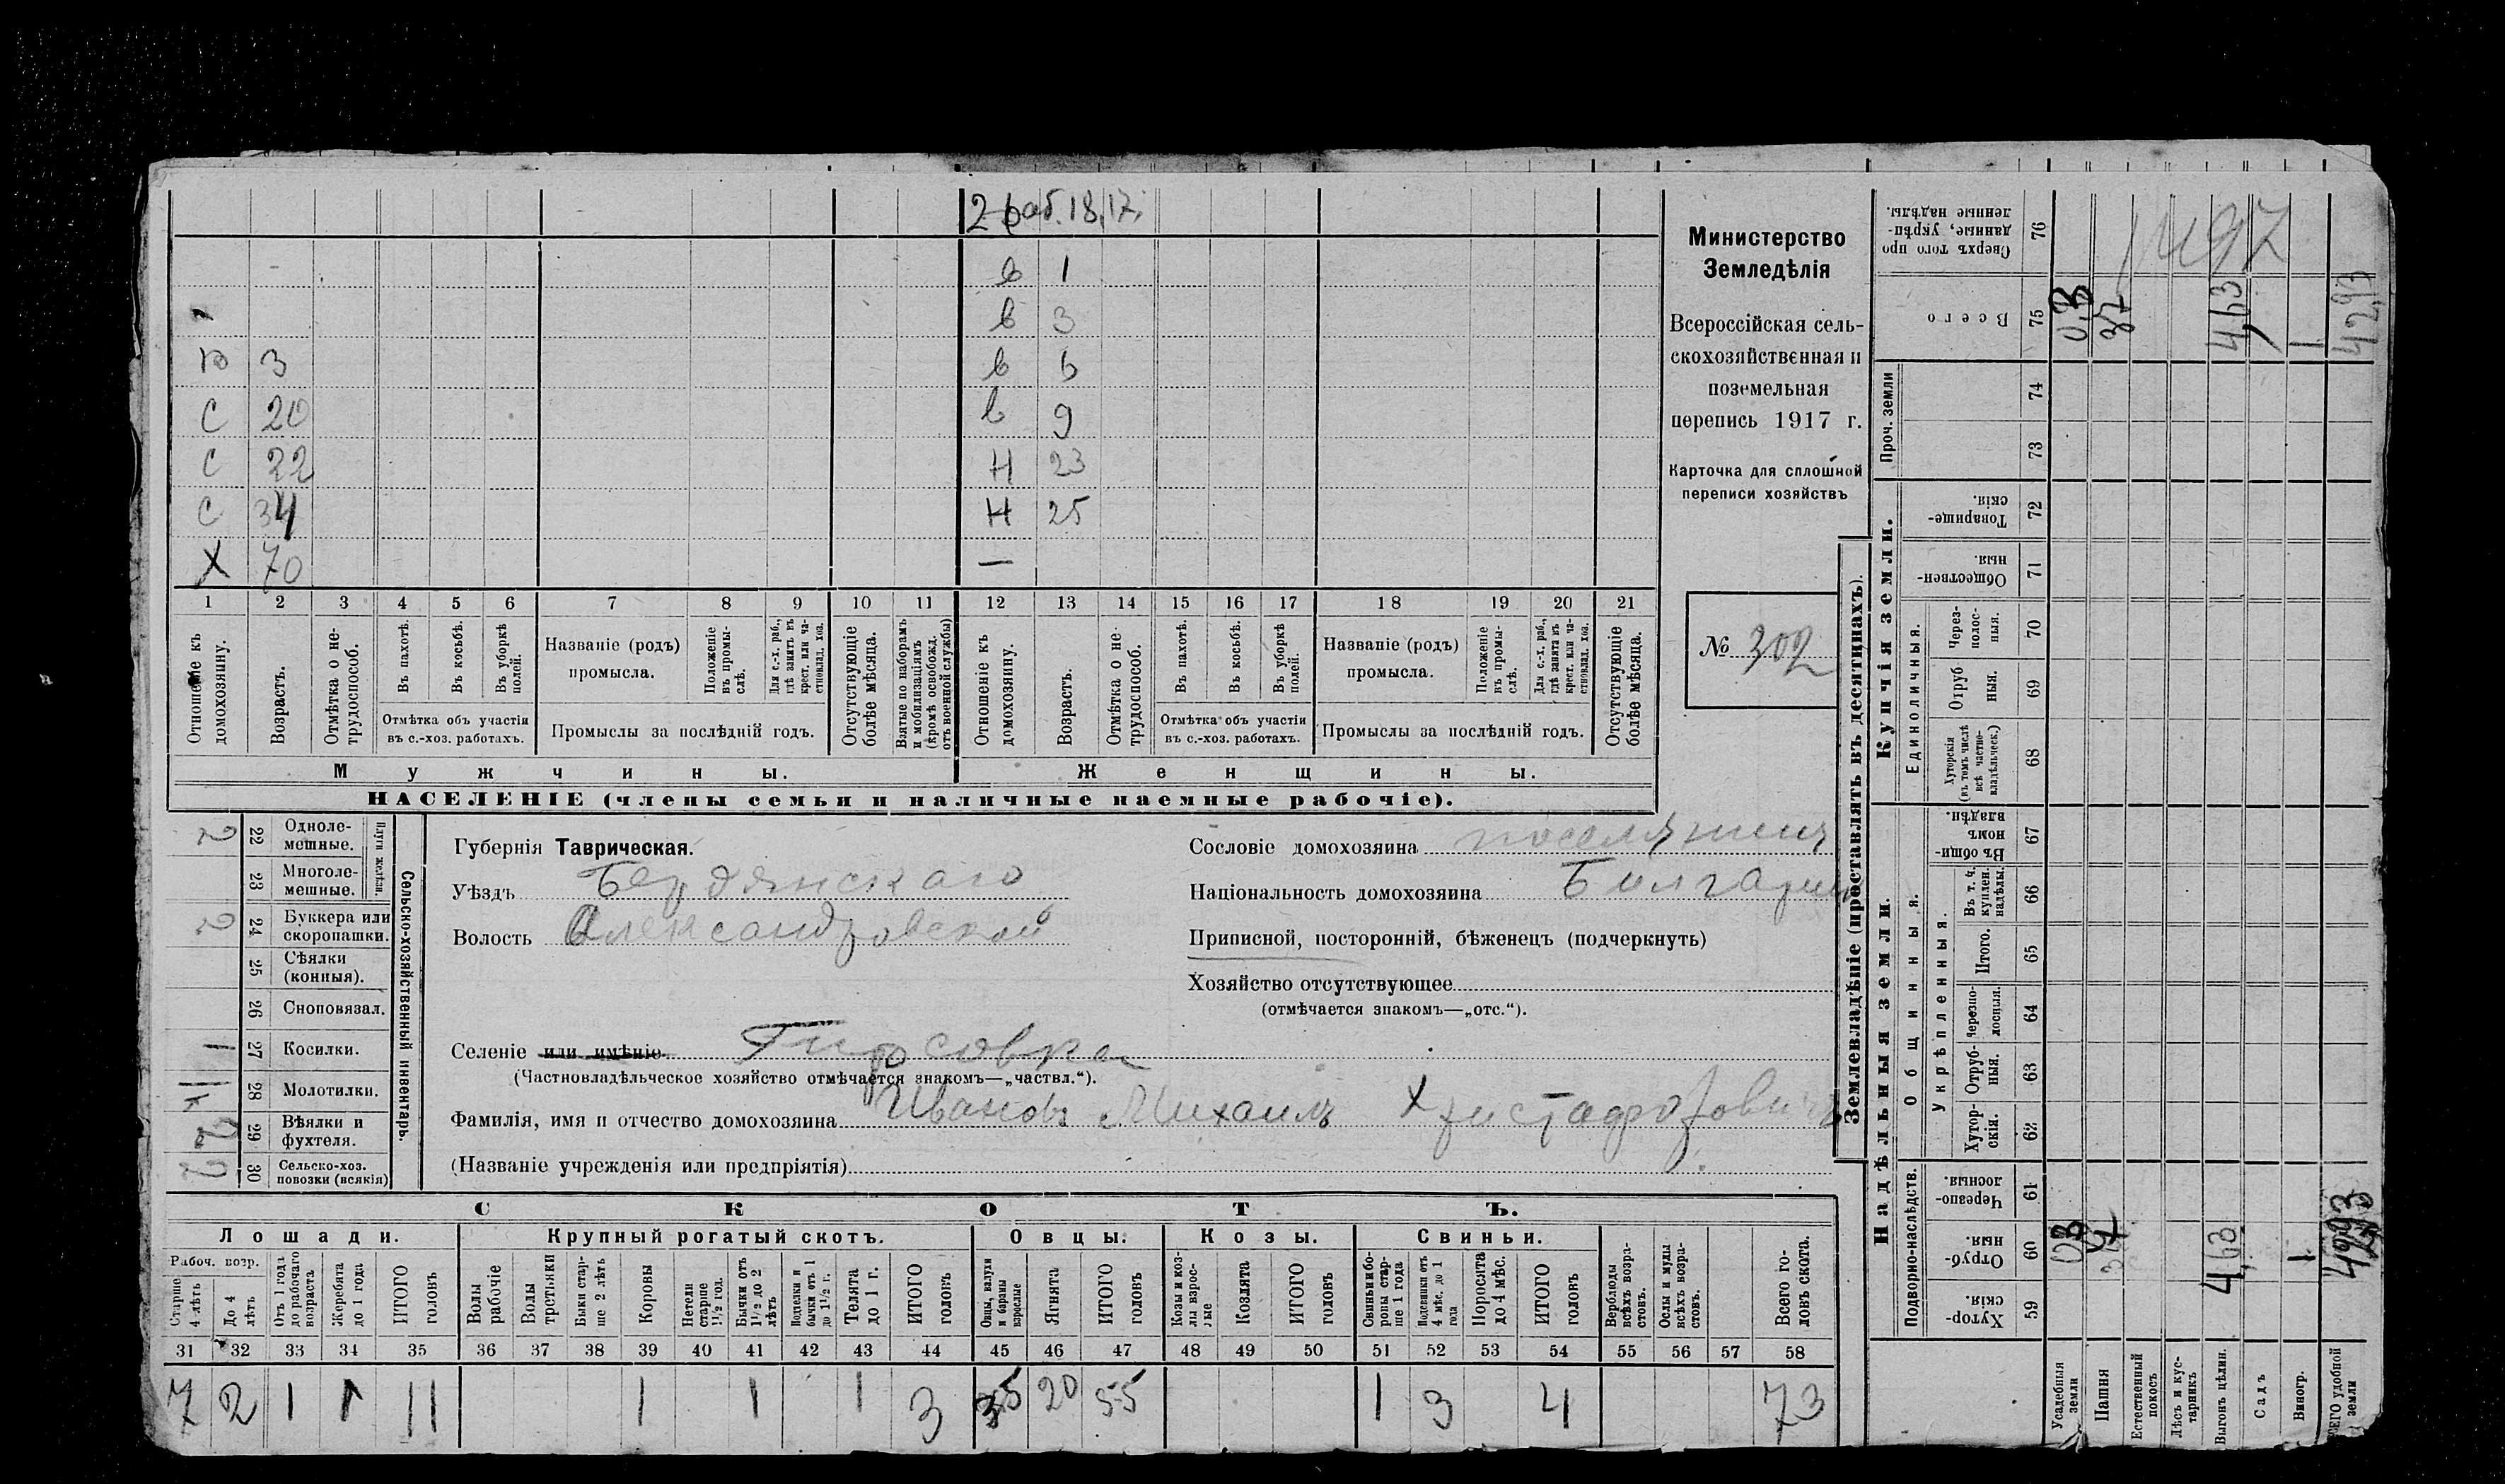 2 раб. 18, 17.
в 1
в 3
в 3 в 6
С 20 в 9
С 22 Н 23
С 34 Н 25
Х 70 —
1 2 3 4 5 6 7 8 9 10 11 12 13 14 15 16 17 18 19 20 21
Отношеніе къ домохозяину.
Возрастъ.
Отмѣтка о не-трудоспособ.
Въ пахотѣ.
Въ косьбѣ.
Въ уборкѣ полей.
Отмѣтка объ участіи въ с.-хоз. работахъ.
Названіе (родъ) промысла.
Положеніе въ промы-слѣ.
Для с.-х. раб., гдѣ занятъ въ крест. или ча-стновлад. хоз.
Промыслы за послѣдній годъ.
Отсутствующіе болѣе мѣсяца.
Взятые по наборамъ и мобилизаціямъ (кромѣ освобожд. отъ военной службы)
Отношеніе къ домохозяину.
Возрастъ.
Отмѣтка о не-трудоспособ.
Въ пахотѣ.
Въ косьбѣ.
Въ уборкѣ полей.
Отмѣтка объ участіи въ с.-хоз. работахъ.
Названіе (родъ) промысла.
Положеніе въ промы-слѣ.
Для с.-х. раб., гдѣ занята въ крест. или ча-стновлад. хоз.
Промыслы за послѣдній годъ.
Отсутствующіе болѣе мѣсяца.
Мужчины. Женщины.
НАСЕЛЕНІЕ (члены семьи и наличные наемные рабочіе).
Министерство
Земледѣлія
Всероссійская сель-
скохозяйственная и
поземельная
перепись 1917 г.
Карточка для сплошной
переписи хозяйствъ
№ 302
Сельско-хозяйственный инвентарь.
Плуги желѣзн.
2 22 Одноле-мешные.
23 Многоле-мешные.
2 24 Буккера или скоропашки.
25 Сѣялки (конныя).
26 Сноповязал.
1 27 Косилки.
28 Молотилки.
29 Вѣялки и фухтеля.
2 30 Сельско-хоз. повозки (всякія)
Губернія Таврическая.
Уѣздъ Бердянскаго
Волость Александровской
Селеніе или имѣніе Гирсовка
(Частновладѣльческое хозяйство отмѣчается знакомъ—„частвл.“).
Фамилія, имя и отчество домохозяина Ивановъ Михаилъ Христафоровичъ
(Названіе учрежденія или предпріятія)
Сословіе домохозяина поселянин
Національность домохозяина Болгарин
Приписной, посторонній, бѣженецъ (подчеркнуть)
Хозяйство отсутствующее
(отмѣчается знакомъ—„отс.“).
СКОТЪ.
Лошади. Крупный рогатый скотъ. Овцы. Козы. Свиньи.
Рабоч. возр.
Старше 4 лѣтъ
До 4 лѣтъ
Отъ 1 года до рабочаго возраста
Жеребята до 1 года
ИТОГО головъ
Волы рабочіе
Волы третьяки
Быки стар-ше 2 лѣтъ
Коровы
Нетели старше 1 1/2 год.
Бычки отъ 1 1/2 до 2 лѣтъ
бычки отъ 1 до 1 1/2 г.
Телята до 1 г.
ИТОГО головъ
Овцы, валухи и бараны взрослые
Ягнята
ИТОГО головъ
Козы и коз-лы взрос-лые
Козлята
ИТОГО головъ
Свиньи бо-ровы стар-ше 1 года
Подсвинки отъ 4 мѣс. до 1 года
Поросята до 4 мѣс.
ИТОГО головъ
Верблюды всѣхъ возра-стовъ.
Ослы и мулы всѣхъ возра-стовъ.
Всего го-ловъ скота.
31 32 33 34 35 36 37 38 39 40 41 42 43 44 45 46 47 48 49 50 51 52 53 54 55 56 57 58
7 2 1 1 11 1 1 1 3 35 20 55 1 3 4 73
Землевладѣніе (проставлять въ десятинахъ).
Надѣльныя земли.
Купчія земли.
Проч. земли
Подворно-наслѣдств.
Общинныя.
Укрѣпленныя.
Единоличныя.
Сверхъ того про-данные, укрѣп-ленные надѣлы. 76
Всего 75
74
73
Товарище-скія. 72
Обществен-ныя. 71
Через-полос-ныя. 70
Отруб-ныя. 69
Хуторскія (въ томъ числѣ всѣ частно-владѣльческ.) 68
Въ общи-номъ владѣн. 67
Въ т. ч. куплен. надѣлы. 66
Итого. 65
Черезпо-лосныя. 64
Отруб-ныя. 63
Хутор-скія. 62
Черезпо-лосныя. 61
Отруб-ныя. 60
Хутор-скія. 59
Усадебныя земли
Пашня
Естественный покосъ
Лѣсъ и кус-тарникъ
Выгонъ цѣлин.
Садъ
Виногр.
ВСЕГО удобной земли
1497
0,3 37 4,63 1 42,93
0,3 37 4,63 1 42,93